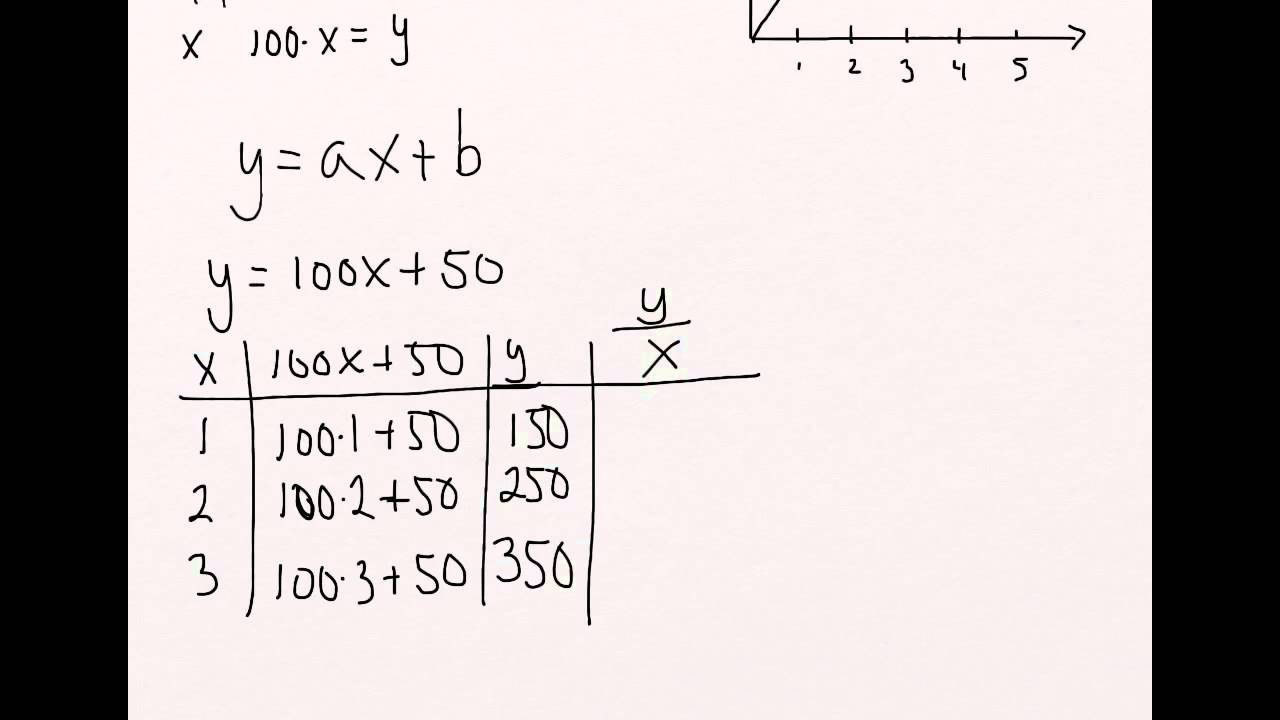 x 100·x = y
1 2 3 4 5
y = ax + b
y = 100x + 50
x 100x + 50 y y/x
1 100·1 + 50 150
2 100·2 + 50 250
3 100·3 + 50 350